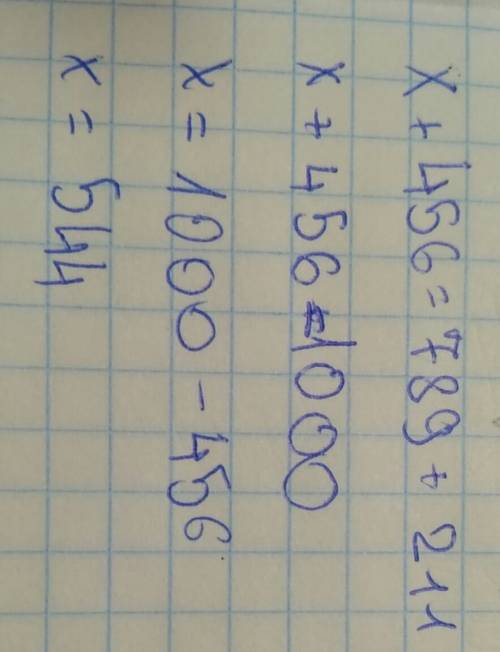 x + 456 = 789 + 211
x + 456 = 1000
x = 1000 - 456
x = 544